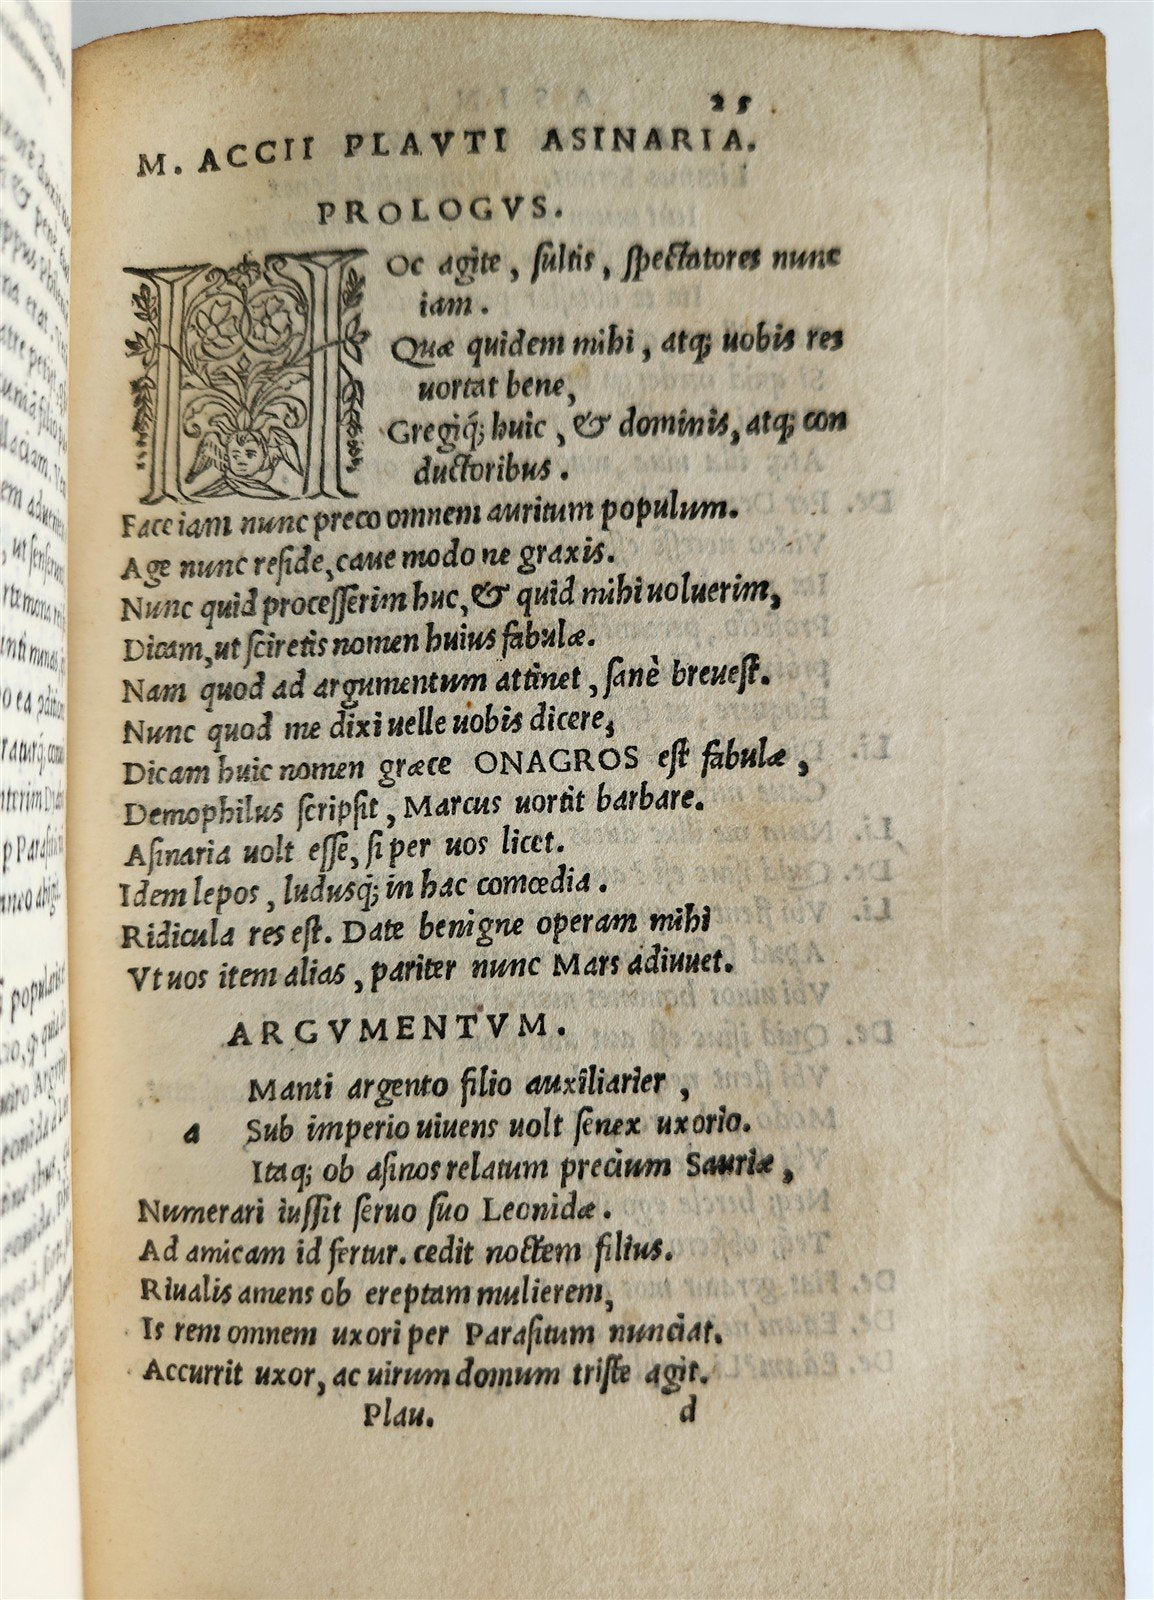 25
M. ACCII PLAVTI ASINARIA.
PROLOGVS.
HOc agite, ſultis, ſpectatores nunc
iam.
Quæ quidem mihi, atq; uobis res
uortat bene,
Gregiq́; huic, & dominis, atq; con
ductoribus.
Face iam nunc preco omnem auritum populum.
Age nunc reſide, caue modo ne graxis.
Nunc quid proceſſerim huc, & quid mihi uoluerim,
Dicam, ut ſciretis nomen huius fabulæ.
Nam quod ad argumentum attinet, ſanè breueſt.
Nunc quod me dixi uelle uobis dicere,
Dicam huic nomen græce ONAGROS eſt fabulæ,
Demophilus ſcripſit, Marcus uortit barbare.
Aſinaria uolt eſſe, ſi per uos licet.
Idem lepos, ludusq́; in hac comœdia.
Ridicula res eſt. Date benigne operam mihi
Vt uos item alias, pariter nunc Mars adiuuet.
ARGVMENTVM.
Manti argento filio auxiliarier,
a Sub imperio uiuens uolt ſenex uxorio.
Itaq; ob aſinos relatum precium Sauriæ,
Numerari iuſſit ſeruo ſuo Leonidæ.
Ad amicam id fertur. cedit noctem filius.
Riualis amens ob ereptam mulierem,
Is rem omnem uxori per Paraſitum nunciat.
Accurrit uxor, ac uirum domum triſte agit.
Plau. d